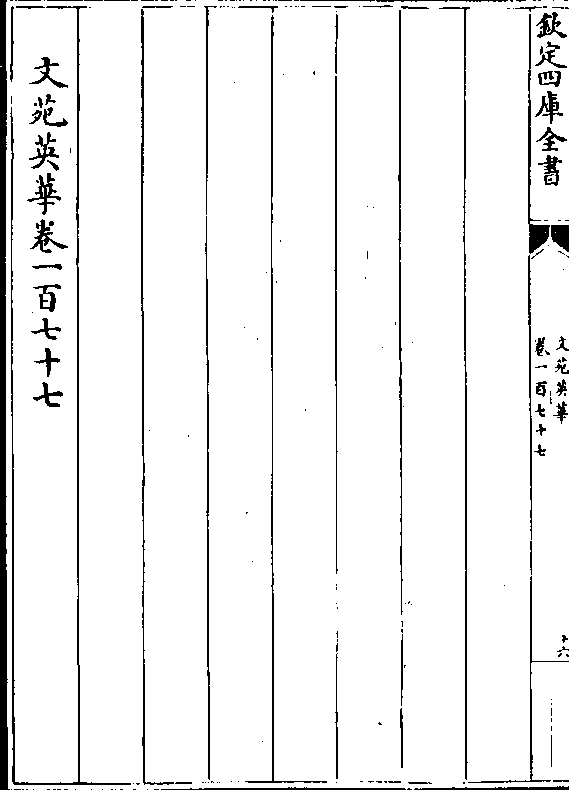 欽定四庫全書
文苑英華
卷一百七十七
十六
文苑英華卷一百七十七